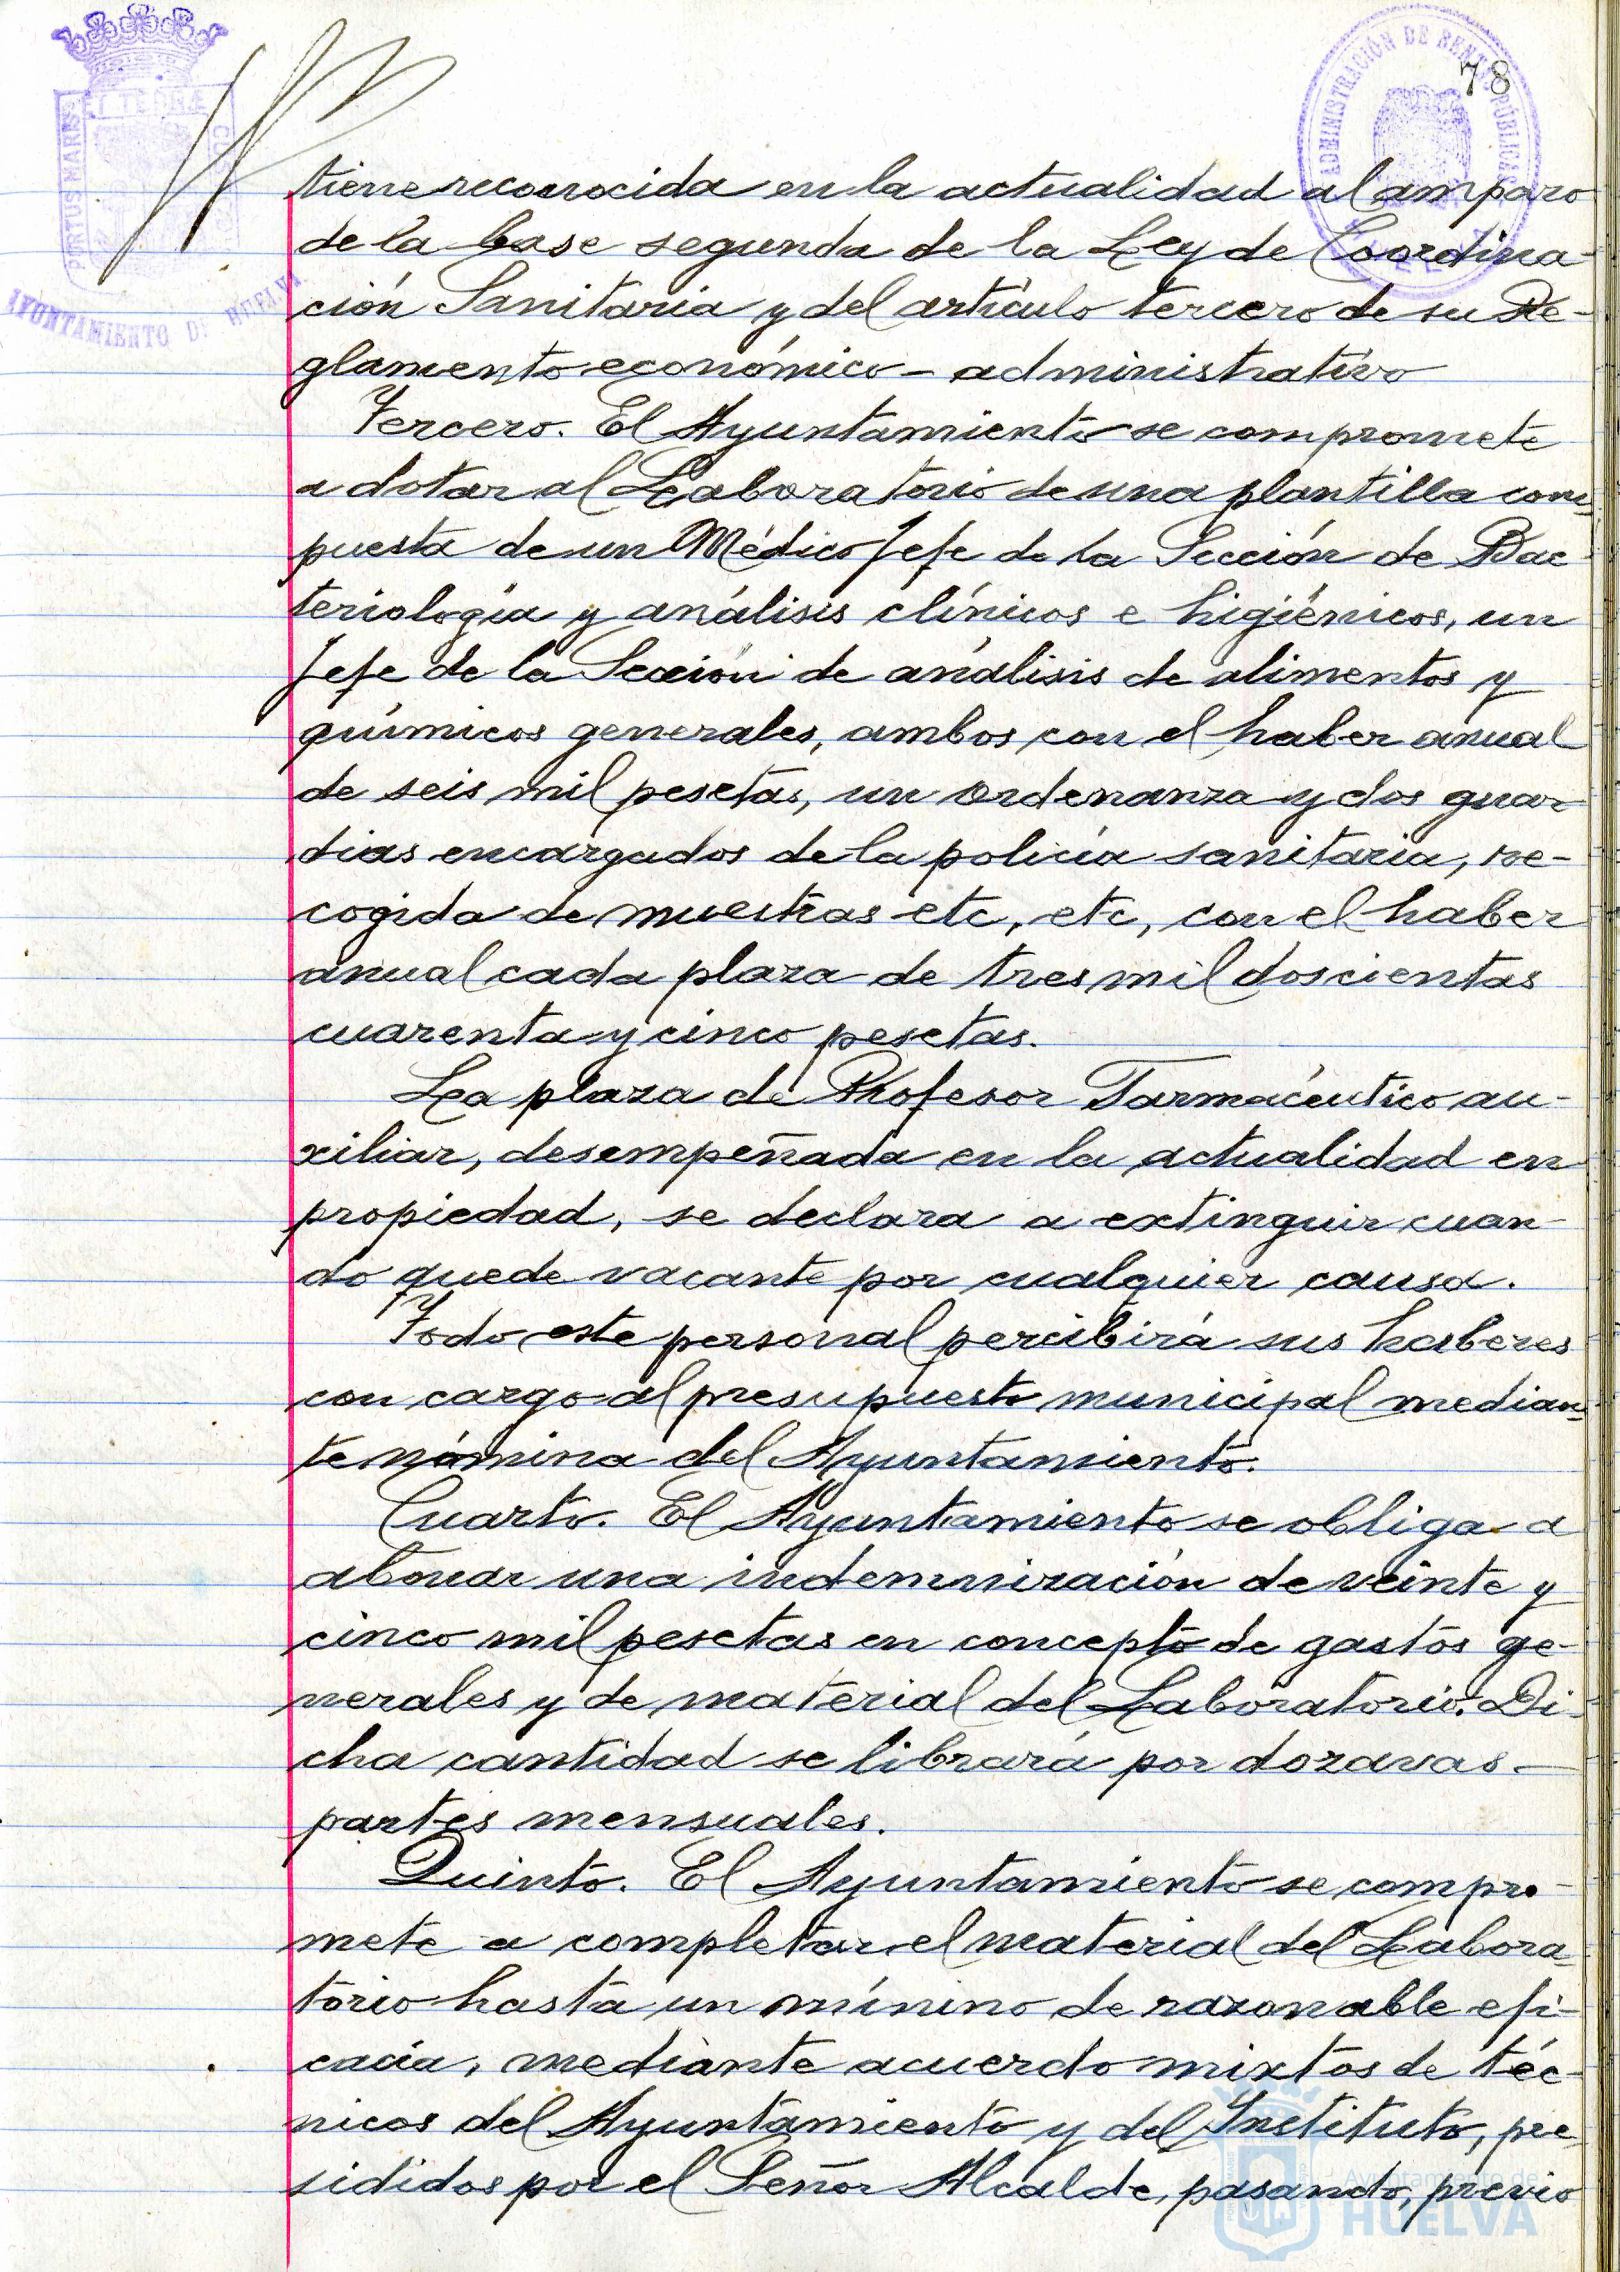 78
ADMINISTRACIÓN DE RENTAS PÚBLICAS
PORTUS MARIS ET TERRÆ CUSTODIA
AYUNTAMIENTO DE HUELVA
tiene reconocida en la actualidad al amparo
de la base segunda de la Ley de Coordina-
ción Sanitaria y del artículo tercero de su Re-
glamento económico-administrativo
Tercero. El Ayuntamiento se compromete
a dotar al Laboratorio de una plantilla com-
puesta de un Médico Jefe de la Sección de Bac-
teriología y análisis clínicos e higiénicos, un
Jefe de la Sección de análisis de alimentos y
químicos generales, ambos con el haber anual
de seis mil pesetas, un Ordenanza y dos guar-
dias encargados de la policía sanitaria, re-
cogida de muestras etc, etc, con el haber
anual cada plaza de tres mil doscientas
cuarenta y cinco pesetas.
La plaza de Profesor Farmacéutico au-
xiliar, desempeñada en la actualidad en
propiedad, se declara a extinguir cuan-
do quede vacante por cualquier causa.
Todo este personal percibirá sus haberes
con cargo al presupuesto municipal median-
te nómina del Ayuntamiento.
Cuarto. El Ayuntamiento se obliga a
abonar una indemnización de veinte y
cinco mil pesetas en concepto de gastos ge-
nerales y de material del Laboratorio. Di-
cha cantidad se librará por dozavas
partes mensuales.
Quinto. El Ayuntamiento se compro-
mete a completar el material del Labora-
torio hasta un mínino de razonable efi-
cacia, mediante acuerdo mixtos de téc-
nicos del Ayuntamiento y del Instituto, pre-
sididos por el Señor Alcalde, pasando, previo
Ayuntamiento de
HUELVA